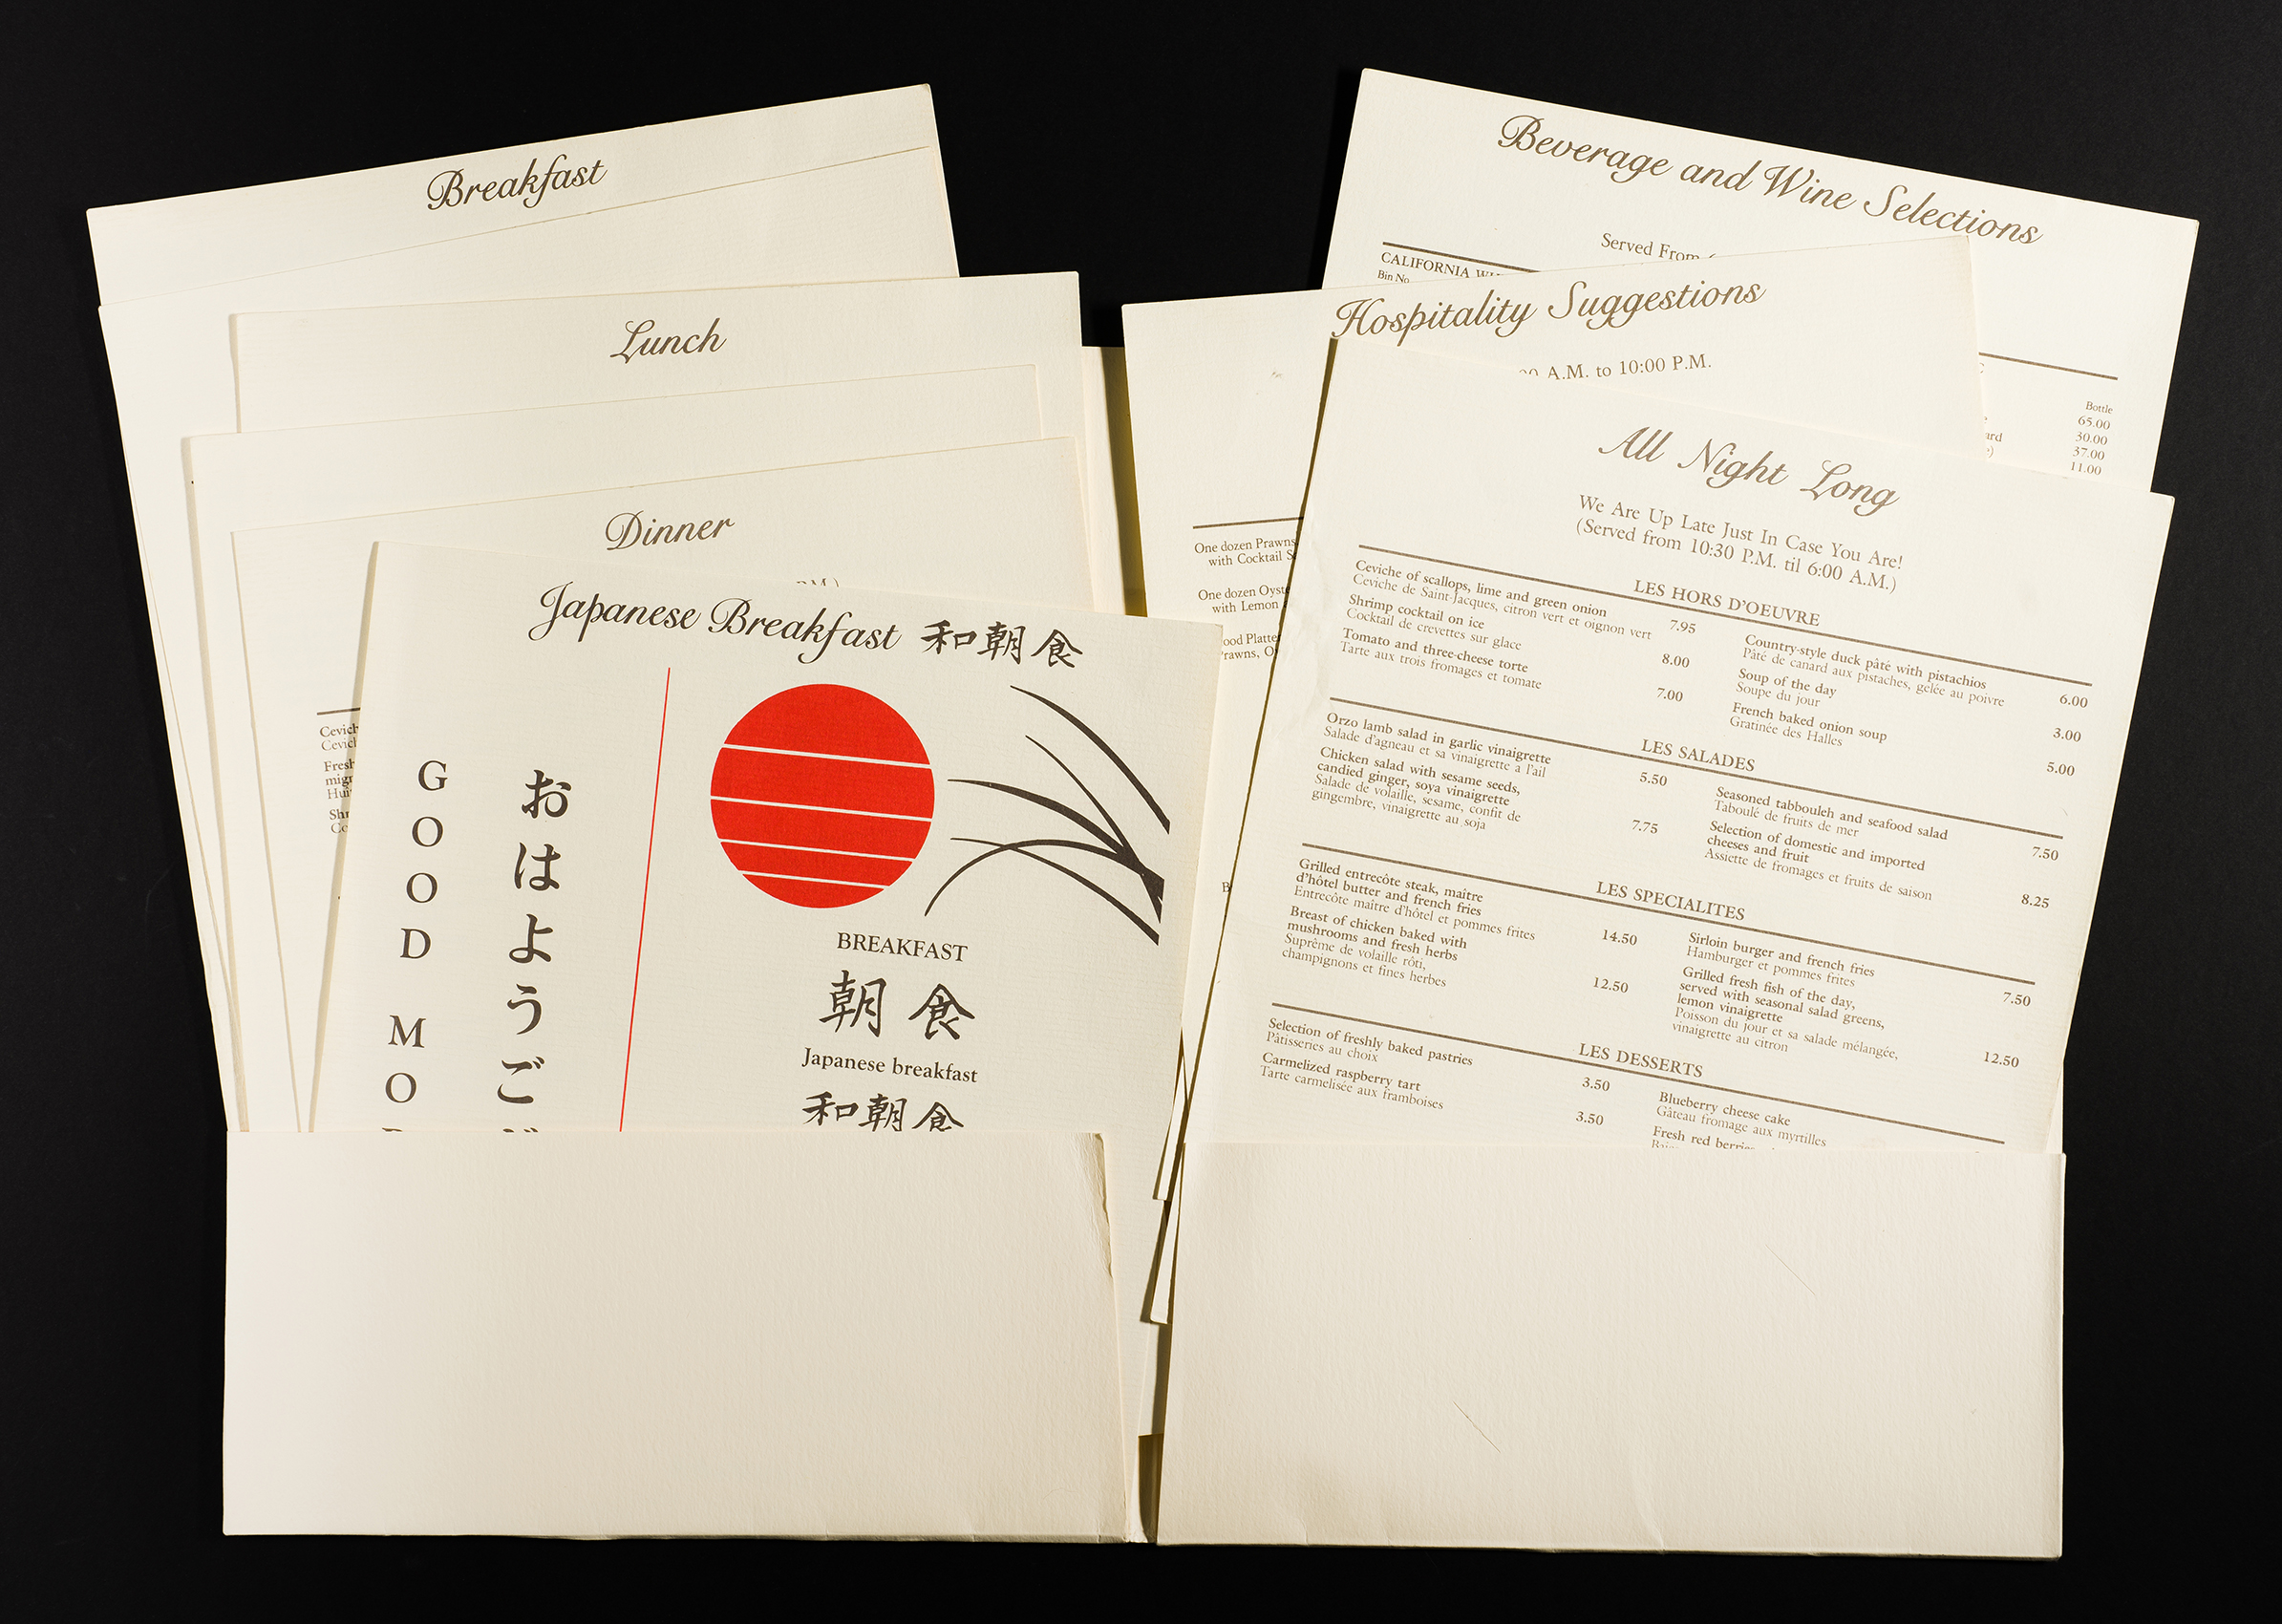 Breakfast
Lunch
Dinner
Cevich
Cevich
Fresh
Japanese Breakfast 和朝食
GOOD MO
おはようご
BREAKFAST
朝食
Japanese breakfast
和朝食
Beverage and Wine Selections
Served From
CALIFORNIA
Bin No
Bottle
65.00
30.00
37.00
11.00
Hospitality Suggestions
A.M. to 10:00 P.M.
One dozen Prawns
with Cocktail S
One dozen Oyste
with Lemon
ood Platte
rawns, O
All Night Long
We Are Up Late Just In Case You Are!
(Served from 10:30 P.M. til 6:00 A.M.)
LES HORS D'OEUVRE
Ceviche of scallops, lime and green onion
Ceviche de Saint-Jacques, citron vert et oignon vert
7.95
Shrimp cocktail on ice
Cocktail de crevettes sur glace
8.00
Tomato and three-cheese torte
Tarte aux trois fromages et tomate
7.00
Country-style duck pâté with pistachios
Pâté de canard aux pistaches, gelée au poivre
6.00
Soup of the day
Soupe du jour
3.00
French baked onion soup
Gratinée des Halles
5.00
LES SALADES
Orzo lamb salad in garlic vinaigrette
Salade d'agneau et sa vinaigrette a l'ail
5.50
Chicken salad with sesame seeds,
candied ginger, soya vinaigrette
Salade de volaille, sesame, confit de
gingembre, vinaigrette au soja
7.75
Seasoned tabbouleh and seafood salad
Taboulé de fruits de mer
7.50
Selection of domestic and imported
cheeses and fruit
Assiette de fromages et fruits de saison
8.25
LES SPECIALITES
Grilled entrecôte steak, maître
d'hôtel butter and french fries
Entrecôte maître d'hôtel et pommes frites
14.50
Breast of chicken baked with
mushrooms and fresh herbs
Suprême de volaille rôti,
champignons et fines herbes
12.50
Sirloin burger and french fries
Hamburger et pommes frites
7.50
Grilled fresh fish of the day,
served with seasonal salad greens,
lemon vinaigrette
Poisson du jour et sa salade mélangée,
vinaigrette au citron
12.50
LES DESSERTS
Selection of freshly baked pastries
Pâtisseries au choix
3.50
Carmelized raspberry tart
Tarte carmelisée aux framboises
3.50
Blueberry cheese cake
Gâteau fromage aux myrtilles
Fresh red berries